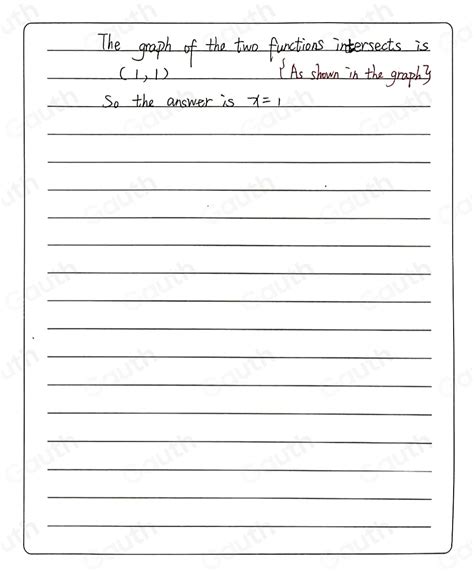 The graph of the two functions intersects is
(1,1) {As shown in the graph}
So the answer is x=1